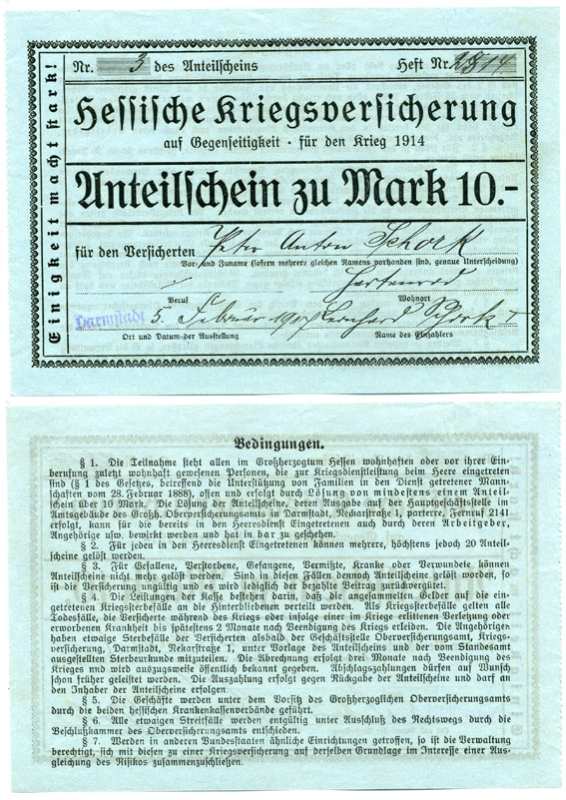 Nr. 3 des Anteilscheins Heft Nr. 2814
Einigkeit macht stark!
Hessische Kriegsversicherung
auf Gegenseitigkeit · für den Krieg 1914
Anteilschein zu Mark 10.-
für den Versicherten Peter Anton Schork
Vor- und Zuname (sofern mehrere gleichen Namens vorhanden sind, genaue Unterscheidung)
Hartenrod
Beruf Wohnort
Darmstadt 5. Februar Leonhard Schork I
Ort und Datum der Ausstellung Name des Einzahlers
Bedingungen.
§ 1. Die Teilnahme steht allen im Großherzogtum Hessen wohnhaften oder vor ihrer Ein-
berufung zuletzt wohnhaft gewesenen Personen, die zur Kriegsdienstleistung beim Heere eingetreten
sind (§ 1 des Gesetzes, betreffend die Unterstützung von Familien in den Dienst getretener Mann-
schaften vom 28. Februar 1888), offen und erfolgt durch Lösung von mindestens einem Anteil-
schein über 10 Mark. Die Lösung der Anteilscheine, deren Ausgabe auf der Hauptgeschäftstelle im
Amtsgebäude des Großh. Oberversicherungsamts in Darmstadt, Neckarstraße 1, parterre, Fernruf 2141
erfolgt, kann für die bereits in den Heeresdienst Eingetretenen auch durch deren Arbeitgeber,
Angehörige usw. bewirkt werden und hat in bar zu geschehen.
§ 2. Für jeden in den Heeresdienst Eingetretenen können mehrere, höchstens jedoch 20 Anteil-
scheine gelöst werden.
§ 3. Für Gefallene, Verstorbene, Gefangene, Vermißte, Kranke oder Verwundete können
Anteilscheine nicht mehr gelöst werden. Sind in diesen Fällen dennoch Anteilscheine gelöst worden, so
ist die Versicherung ungültig und es wird lediglich der bezahlte Beitrag zurückvergütet.
§ 4. Die Leistungen der Kasse bestehen darin, daß die angesammelten Gelder auf die ein-
getretenen Kriegssterbefälle an die Hinterbliebenen verteilt werden. Als Kriegssterbefälle gelten alle
Todesfälle, die Versicherte während des Kriegs oder infolge einer im Kriege erlittenen Verletzung oder
erworbenen Krankheit bis spätestens 2 Monate nach Beendigung des Kriegs erleiden. Die Angehörigen
haben etwaige Sterbefälle der Versicherten alsbald der Geschäftstelle Oberversicherungsamt, Kriegs-
versicherung, Darmstadt, Nekarstraße 1, unter Vorlage des Anteilscheins und der vom Standesamt
ausgestellten Sterbeurkunde mitzuteilen. Die Abrechnung erfolgt drei Monate nach Beendigung des
Krieges und wird auszugsweise öffentlich bekannt gegeben. Abschlagszahlungen dürfen auf Wunsch
schon früher geleistet werden. Die Auszahlung erfolgt gegen Rückgabe der Anteilscheine und darf an
den Inhaber der Anteilscheine erfolgen
§ 5. Die Geschäfte werden unter dem Vorsitz des Großherzoglichen Oberversicherungsamts
durch die beiden hessischen Krankenkassenverbände geführt.
§ 6. Alle etwaigen Streitfälle werden entgültig unter Ausschluß des Rechtswegs durch die
Beschlußkammer des Oberversicherungsamts entschieden.
§ 7. Werden in anderen Bundesstaaten ähnliche Einrichtungen getroffen, so ist die Verwaltung
berechtigt, sich mit diesen zu einer Kriegsversicherung auf derselben Grundlage im Interesse einer Aus-
gleichung des Risikos zusammenzuschließen.